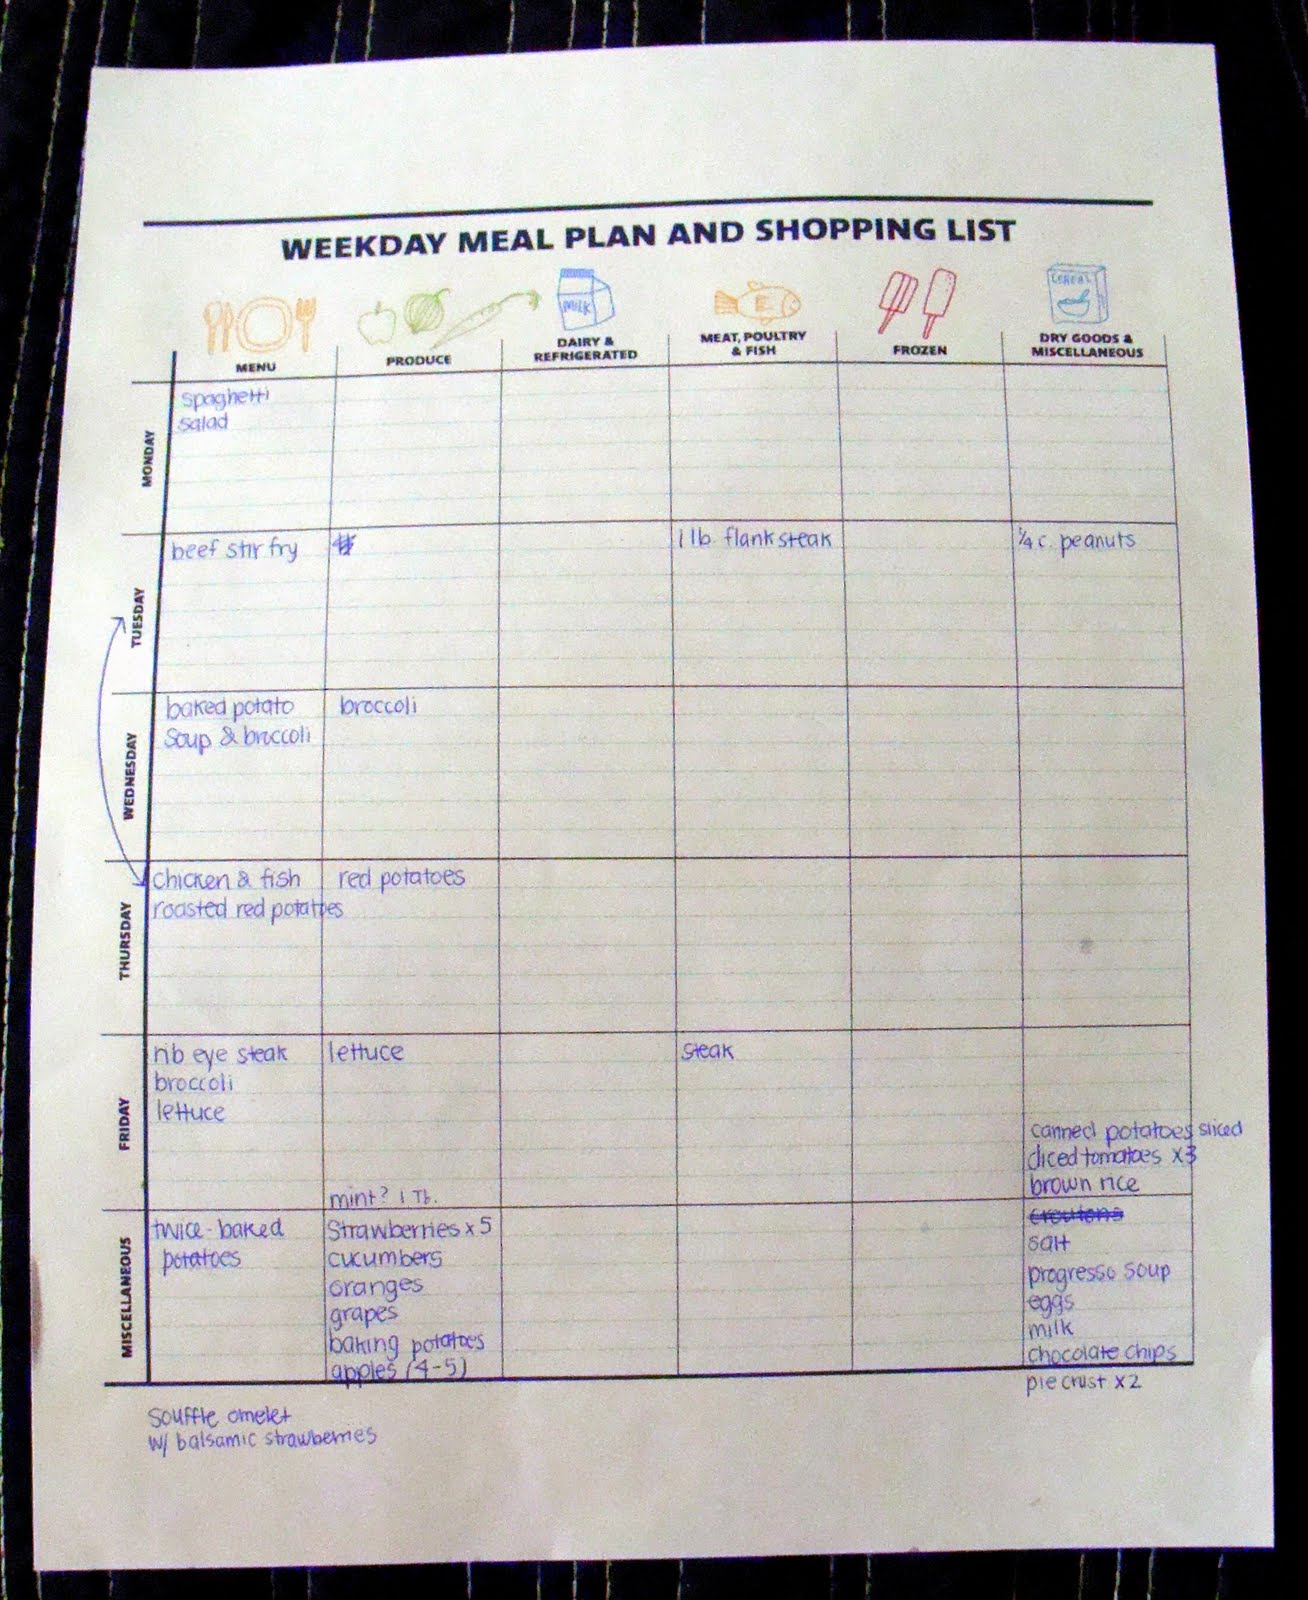 WEEKDAY MEAL PLAN AND SHOPPING LIST
MILK
CEREAL
MENU
PRODUCE
DAIRY &
REFRIGERATED
MEAT, POULTRY
& FISH
FROZEN
DRY GOODS &
MISCELLANEOUS
MONDAY
spaghetti
salad
TUESDAY
beef stir fry
1 lb. flank steak
1/4 c. peanuts
WEDNESDAY
baked potato
soup & broccoli
broccoli
THURSDAY
chicken & fish
roasted red potatoes
red potatoes
FRIDAY
rib eye steak
broccoli
lettuce
lettuce
mint? 1 Tb.
steak
canned potatoes sliced
diced tomatoes x3
brown rice
MISCELLANEOUS
twice-baked
potatoes
Strawberries x 5
cucumbers
oranges
grapes
baking potatoes
apples (4-5)
croutons
salt
progresso soup
eggs
milk
chocolate chips
pie crust x2
Souffle omelet
w/ balsamic strawberries